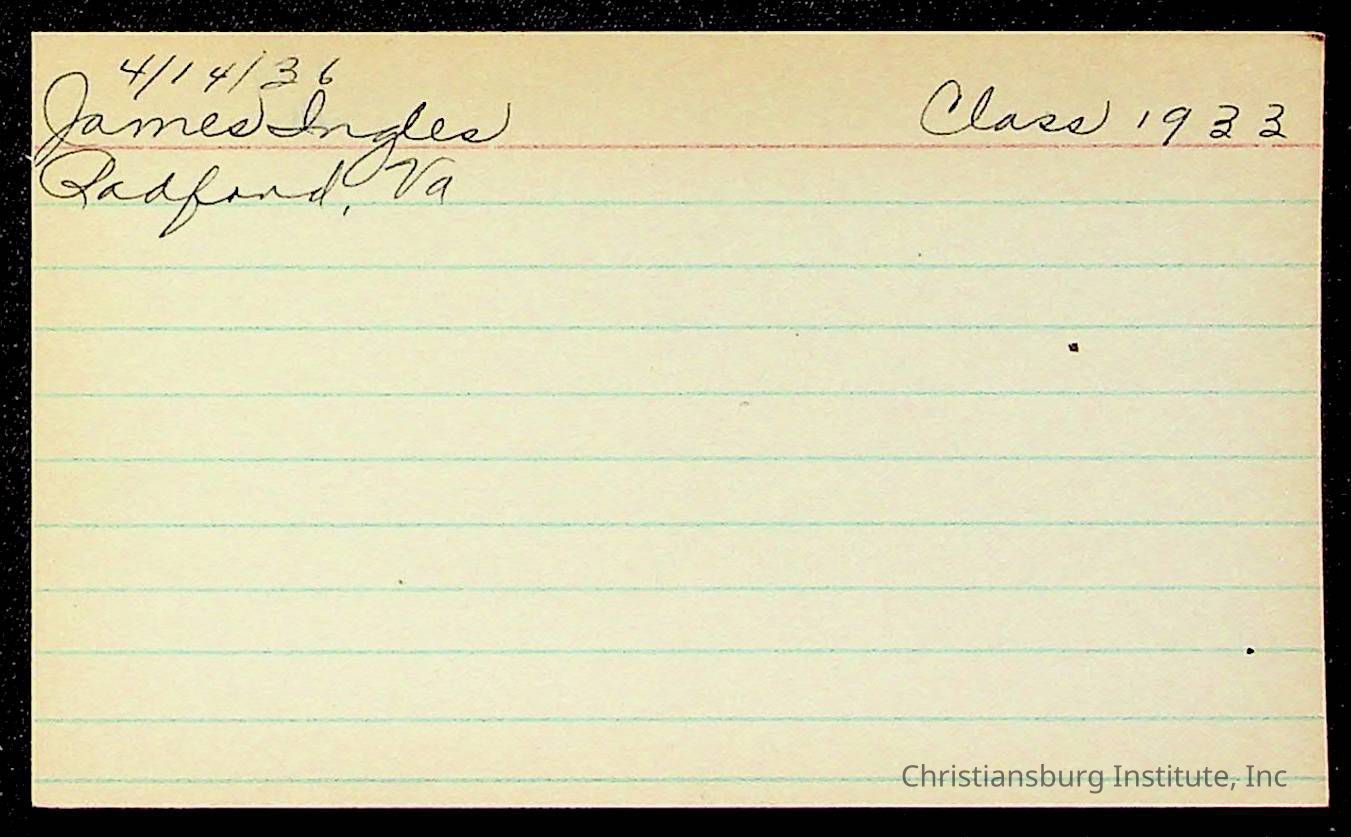 4/14/36
James Ingles Class 1933
Radford, Va
Christiansburg Institute, Inc